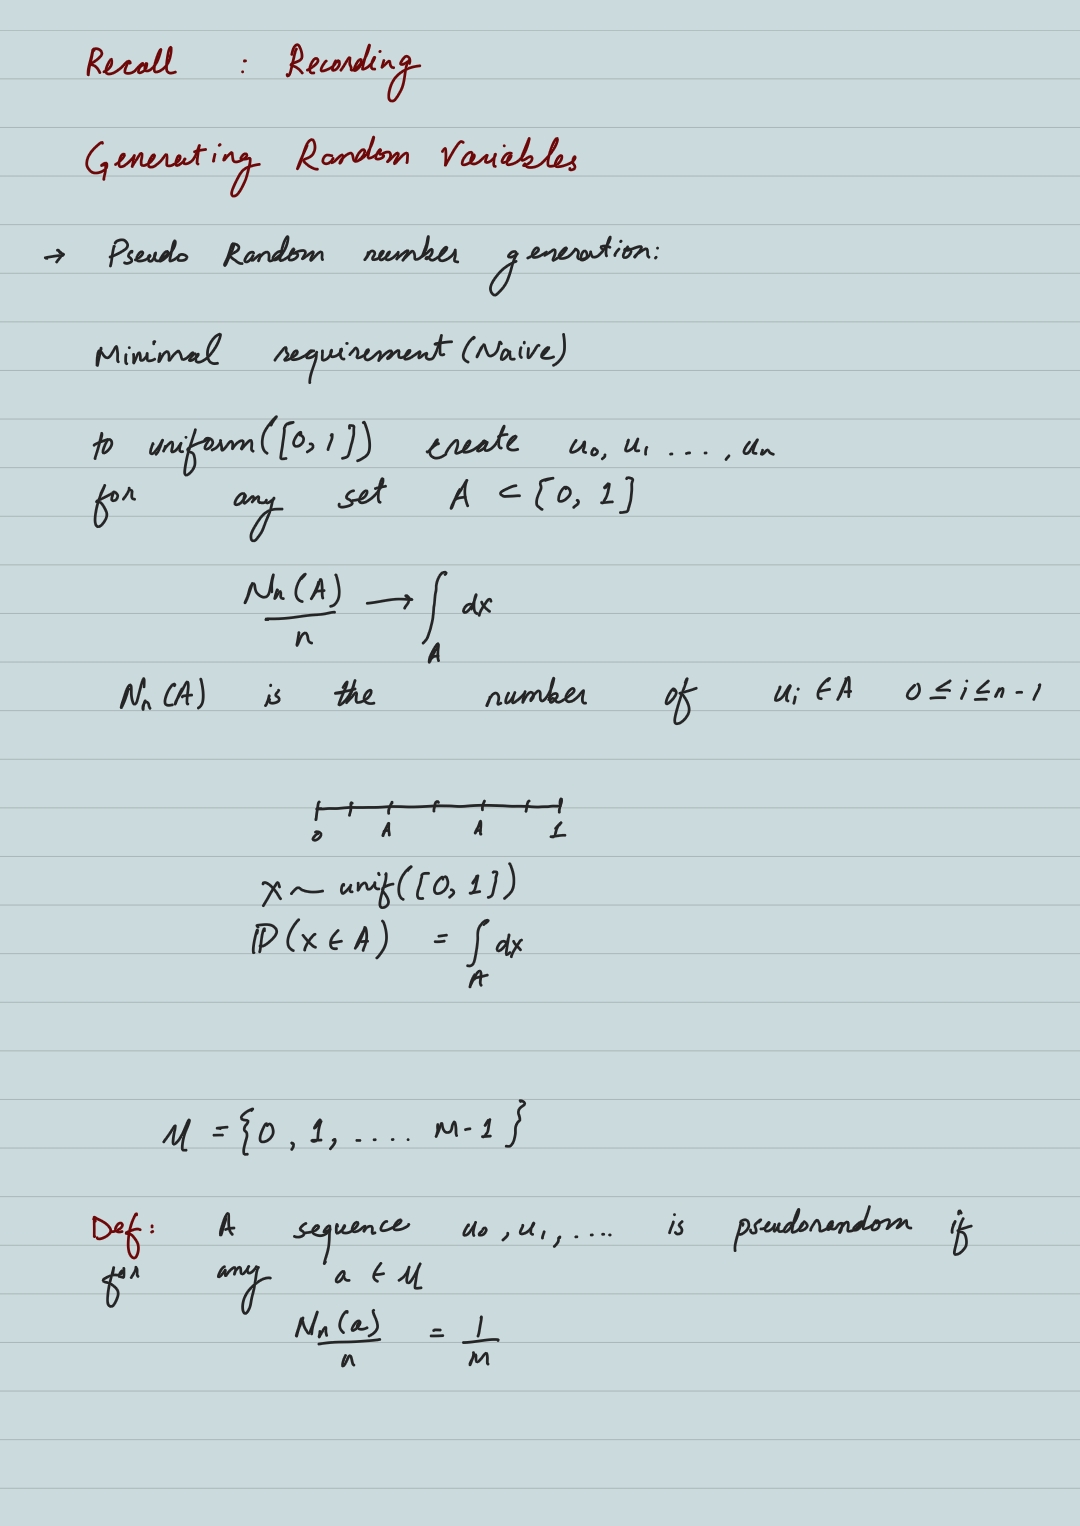 Recall : Recording
Generating Random Variables
→ Pseudo Random number generation:
Minimal requirement (Naive)
to uniform([0, 1]) create u₀, u₁ ...., uₙ
for any set A ⊂ [0, 1]
Nₙ(A)/n → ∫_A dx
Nₙ(A) is the number of uᵢ ∈ A 0 ≤ i ≤ n-1
0 A A 1
X ~ unif([0, 1])
ℙ(X ∈ A) = ∫_A dx
M = {0, 1, .... M-1}
Def: A sequence u₀, u₁, .... is pseudorandom if
for any a ∈ M
Nₙ(a)/n = 1/M